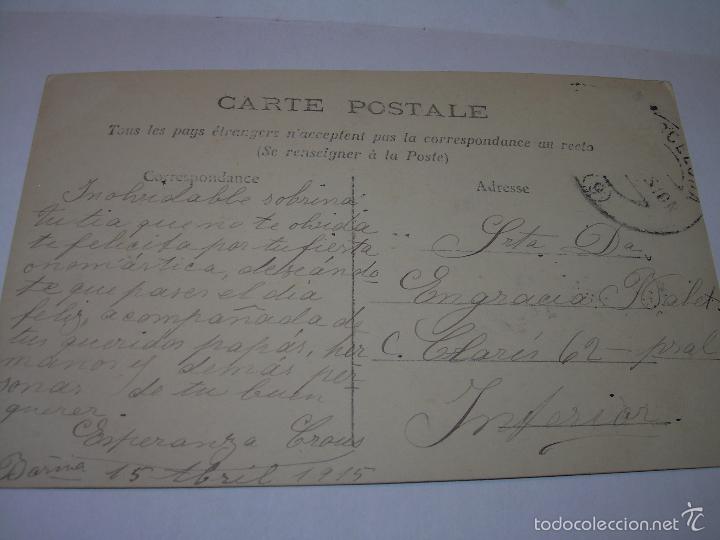 CARTE POSTALE
Tous les pays étrangers n'acceptent pas la correspondance au recto
(Se renseigner à la Poste)
Correspondance
Inolvidable sobrina
tu tia que no te olvida
te felicita por tu fiesta
onomástica, deseándo
te que pases el día
feliz, acompañada de
tus queridos papás, her
manos y demás per
sonas de tu buen
querer
Esperanza Crous
Barna 15 Abril 1915
Adresse
Srta Da
Engracia
C. Claris 62 - pral
Interior
todocoleccion.net